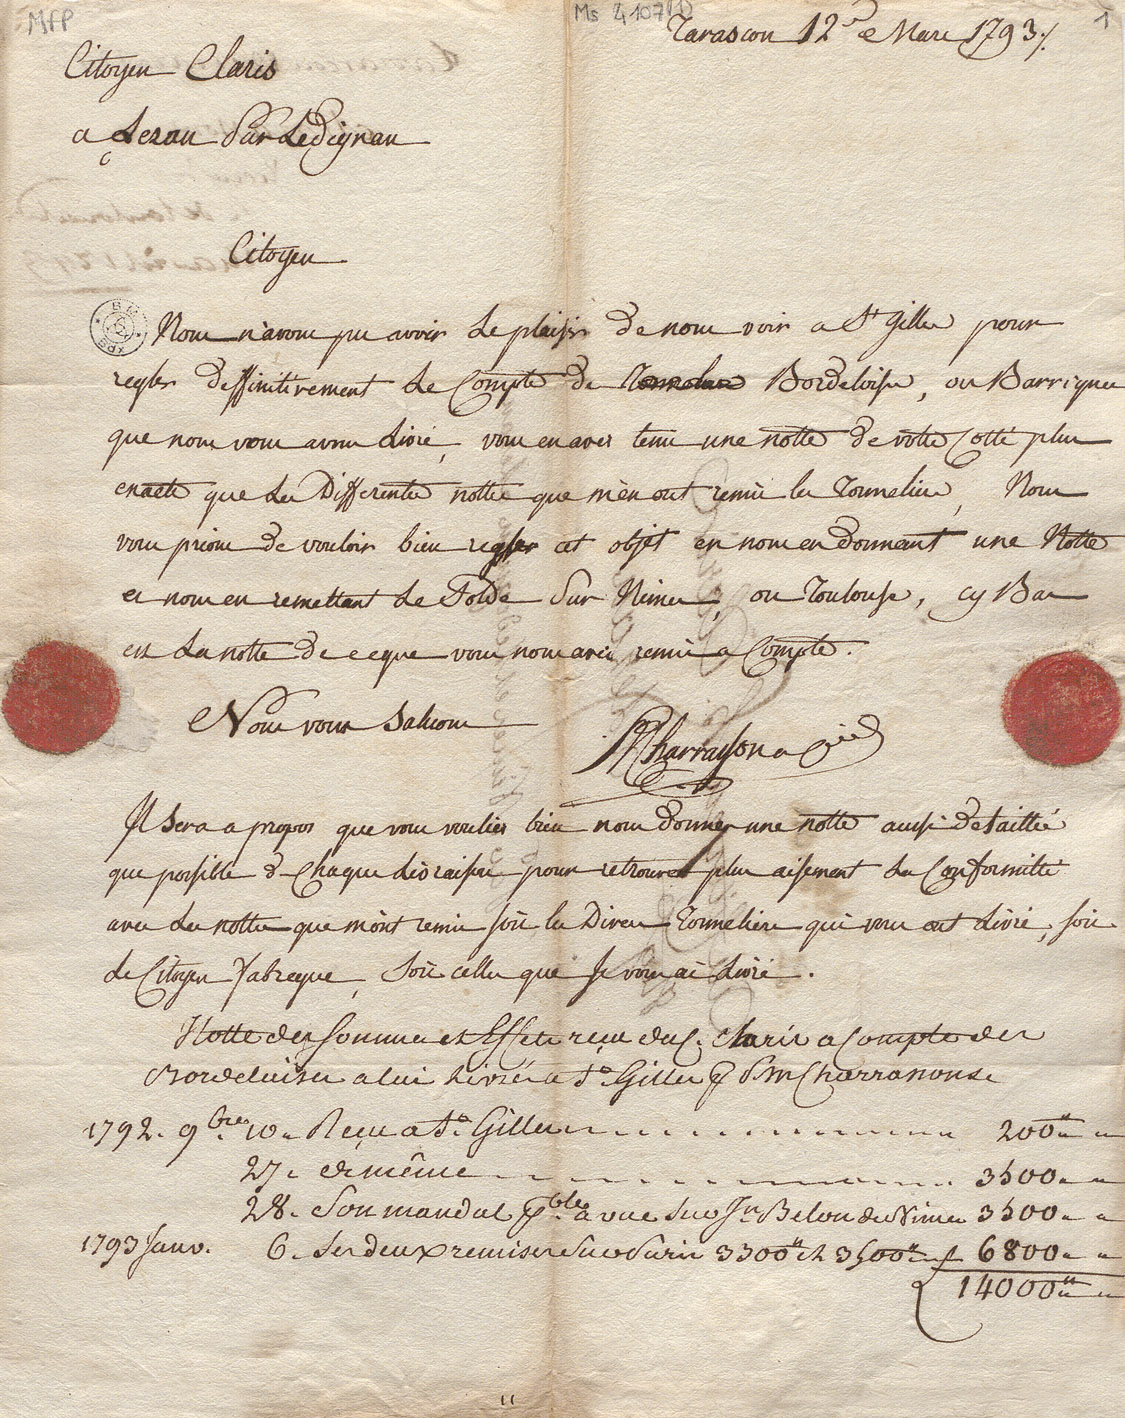 MFP
Ms 4107 (1)
1
Tarascon 12e Mars 1793 /.
Citoyen Claris
a Lezan Par Ledignan
Citoyen
Nous n'avons pu avoir Le plaisir de nous voir a St Gilles pour
regler deffinitivement Le Compte de Bordeloises, ou Barriques
que nous vous avons Livré, vous en aves tenu une notte de votre Cotté plus
enacte que Les Differentes nottes que m'en ont remis les Tonneliers, Nous
vous prions de vouloir bien regler cet objet en nous en donnant une Notte
et nous en remettant Le Solde Sur Nimes, ou Toulouse, cy Bas
est La notte de ce que vous nous avés remis a Compte.
Nous vous Saluons
Charrasson
Il Sera a propos que vous vouliés bien nous donner une notte aussi detaillée
que possible de Chaque Livraison pour retrouver plus aisement La Conformitté
avec Les nottes que m'ont remis soit les Divers Tonneliers qui vous ont Livré, soit
Le Citoyen fabregue, Soit celles que Je vous ai Livré.
Notte des sommes et Effets reçu du C. Claris a Compte des
Bordeloises a lui Livrés a St. Gilles P. Charrasson &
1792. 9bre 10. Reçu a St. Gilles 200"
27. de même 3500
28. Son mandat payable a vue sur Jn Belon de Nimes 3500
1793 Janv. 6. Ses deux remises Sur Paris 3300" et 3500" 6800
14000"